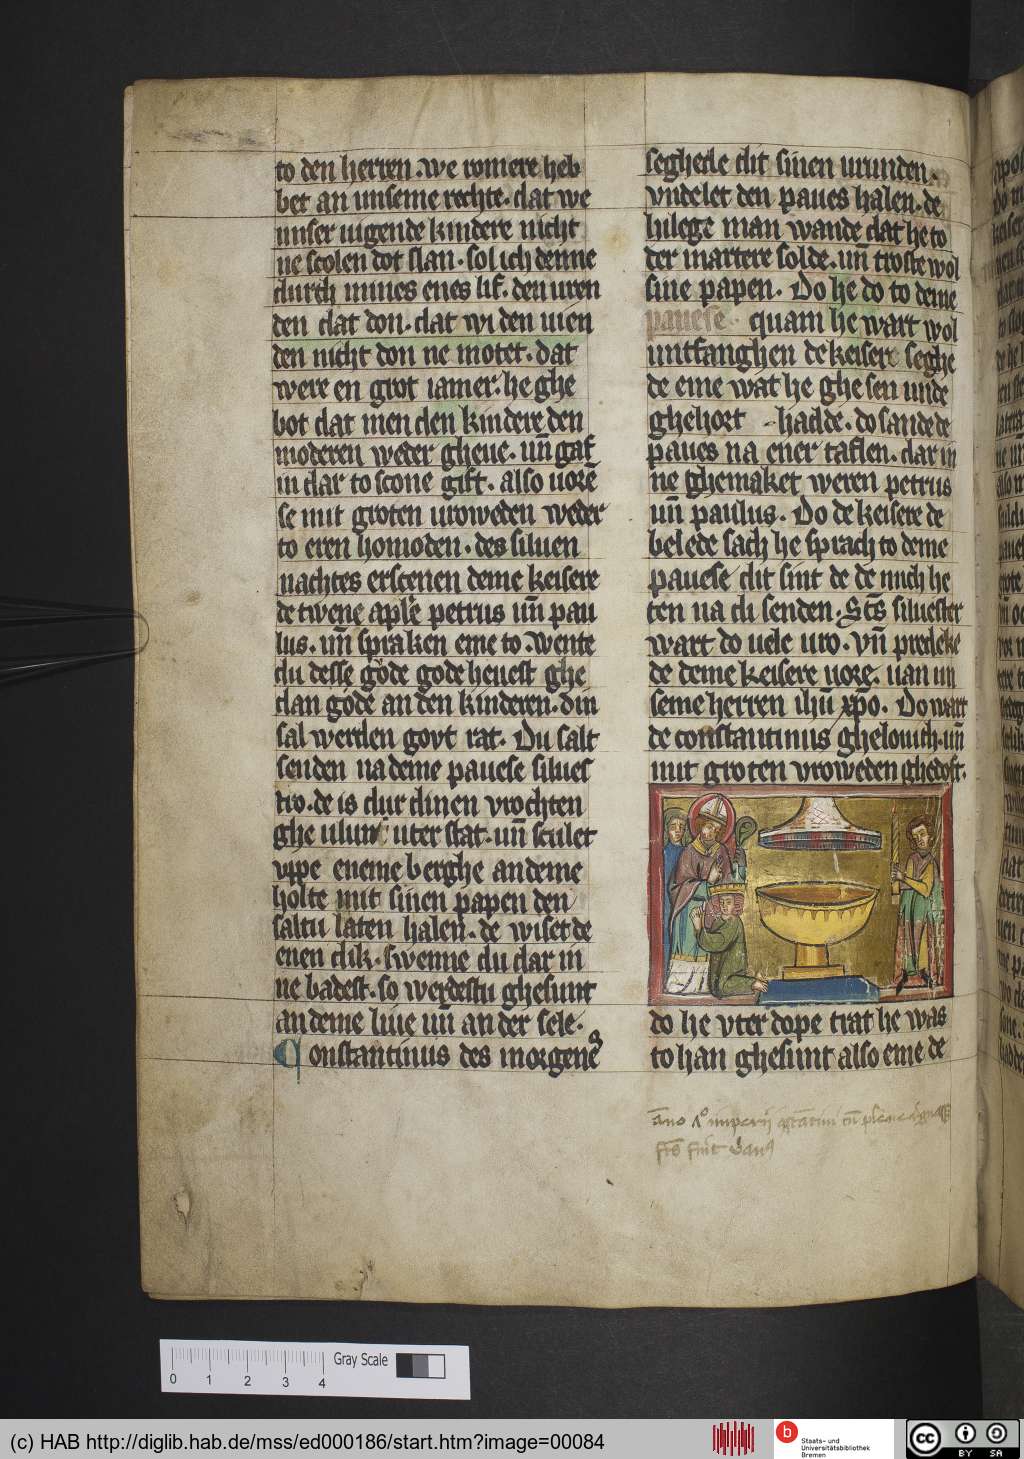 to den herren. we romere heb
bet an unseme rechte. dat we
unser iugende kindere nicht
ne scolen dot slan. sol ich denne
durch mines enes lif. den uren
den dat don. dat wi den uien
den nicht don ne motet. dat
were en grot iamer. he ghe
bot dat men den kindere den
moderen weder gheue. uñ gaf
in dar to scone gift. also uorē
se mit groten uroweden weder
to eren homoden. des siluen
nachtes erscenen deme keisere
de twene aple petrus uñ pau
lus. uñ spraken eme to. Wente
du desse gode gode heuest ghe
dan gode an den kinderen. din
sal werden govt rat. Du salt
senden na deme pauese silues
tro. de is dur dinen vrochten
ghe ulun uter stat. uñ sculet
vppe eneme berghe an deme
holte mit sinen papen den
saltu laten halen. de wiset de
enen dik. swenne du dar in
ne badest. so werdestu ghesunt
an deme liue uñ an der sele.
Constantinus des morgenes
seghede dit sinen urunden.
vnde let den paues halen. de
hilege man wande dat he to
der martere solde. uñ troste wol
sine papen. Do he do to deme
pauese quam he wart wol
untfanghen de keisere seghe
de eme wat he ghe sen unde
ghehort hadde. do sande de
paues na ener taflen. dar in
ne ghemaket weren petrus
uñ paulus. Do de keisere de
belede sach he sprach to deme
pauese dit sint de de mich he
ten na di senden. Scs siluester
wart do uele uro. Vñ predeke
de deme keisere uore. uan un
seme herren ihū xpō. Do wart
de constantinus ghelouich. uñ
mit groten vroweden ghedoft.
do he vter dope trat he was
to han ghesunt also eme de
Gray Scale
0 1 2 3 4
(c) HAB http://diglib.hab.de/mss/ed000186/start.htm?image=00084
Staats- und
Universitätsbibliothek
Bremen
cc BY SA